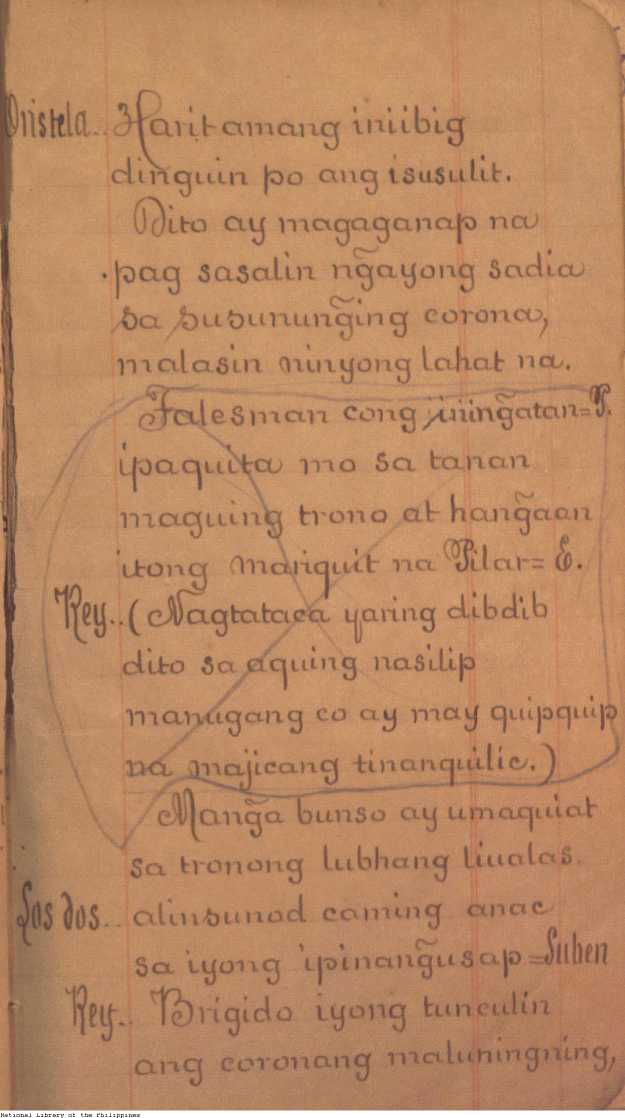 Oristela.. Harit amang iniibig
dinguin po ang isusulit.
Dito ay magaganap na
pag sasalin ng̃ayong sadia
sa susunung̃ing corona,
malasin ninyong lahat na.
Talesman cong ining̃atan=T.
ipaquita mo sa tanan
maguing trono at hang̃aan
itong mariquit na Pilar=E.
Rey..(Nagtataca yaring dibdib
dito sa aquing nasilip
manugang co ay may quipquip
na majicang tinanquilic.)
Mang̃a bunso ay umaquiat
sa tronong lubhang liualas.
Los dos.. alinsunod caming anac
sa iyong ipinang̃usap=Suben
Rey.. Brigido iyong tunculin
ang coronang maluningning,
National Library of the Philippines